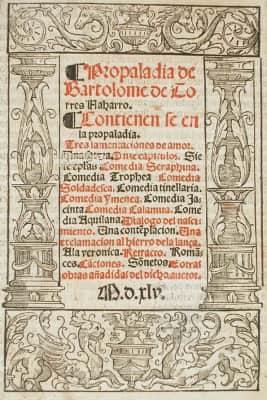 ¶Propaladia de
Bartolome de To
rres Naharro.
¶Contienen se en
la propaladia.
Tres lamentaciones de amor.
Una satyra. Onze capitulos. Sie
te epistolas Comedia Seraphina.
Comedia Trophea Comedia
Soldadesca. Comedia tinellaria.
Comedia Ymenea. Comedia Ja-
cinta Comedia Calamita. Come
dia Aquilana Dialogo del nasci
miento. Una contemplacion. Una
exclamacion al hierro de la lança.
A la veronica. Retracto. Roman-
ces. Cāciones. Sonetos. E otras
obras añadidas del dicho auctor.
M.d.xlv.